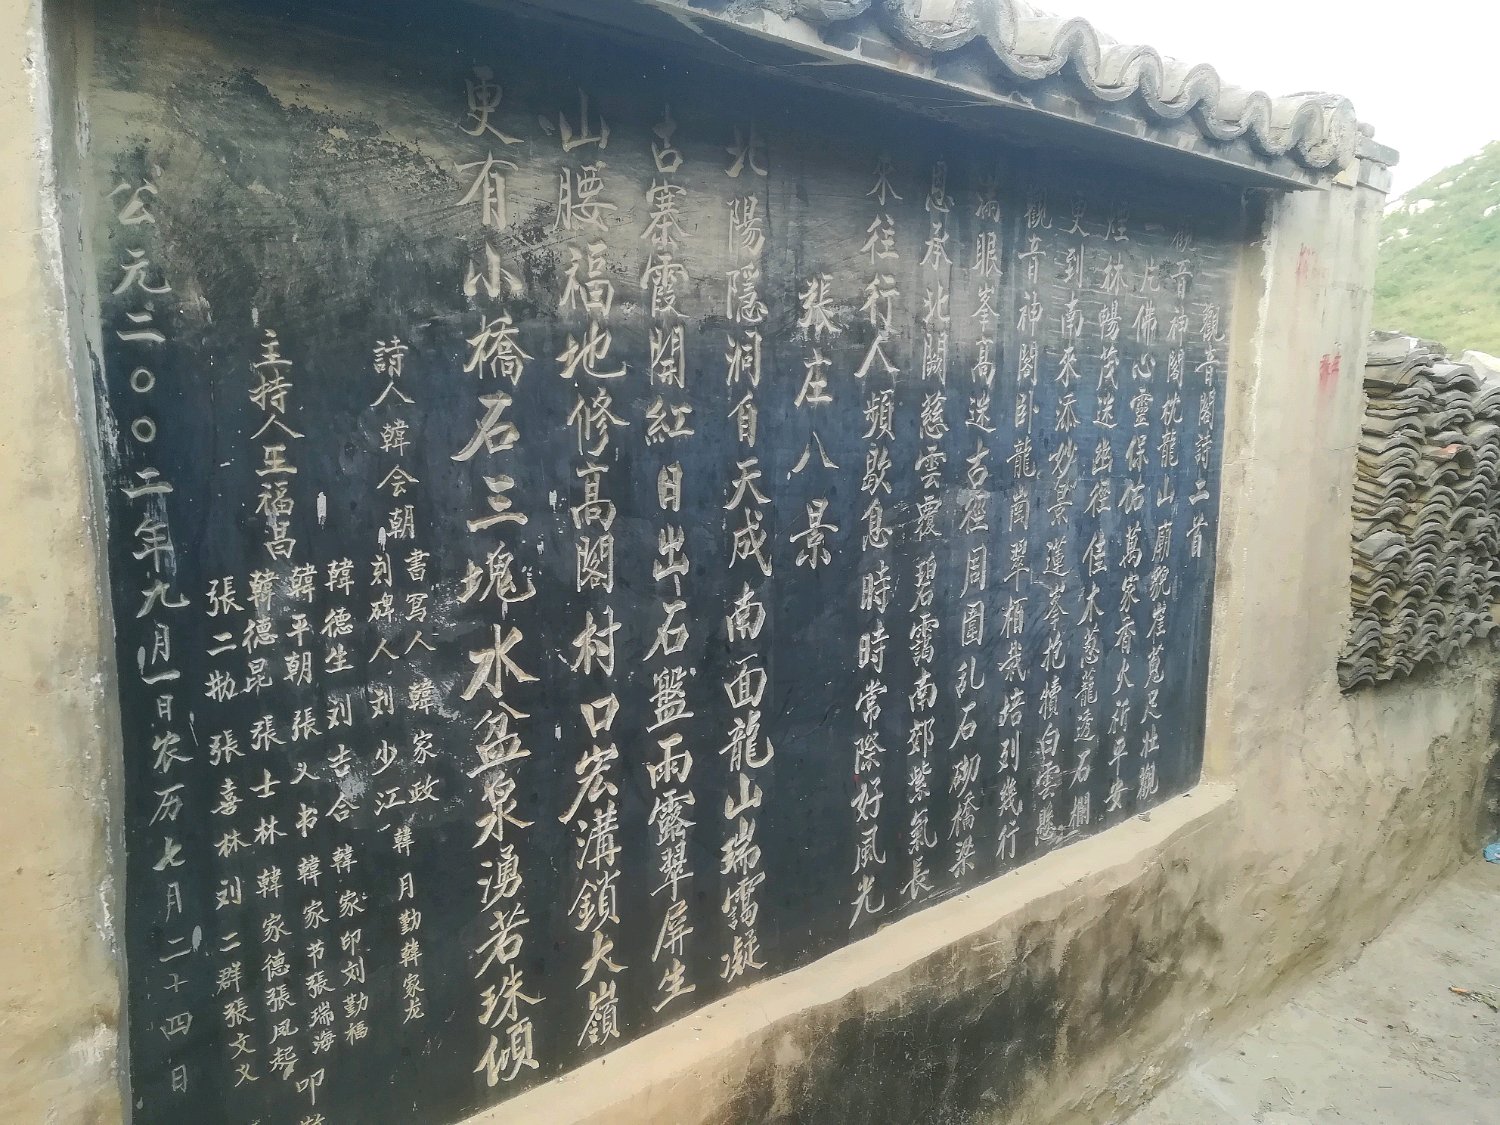 觀音閣詩二首
觀音神閣枕龍山廟貌崔嵬足壯觀
一片佛心靈保佑萬家香火祈平安
煙林暢茂迷幽徑佳木葱蘢透石欄
更到南來添妙景蓮峯抱犢白雲懸
觀音神閣卧龍崗翠栢栽培列幾行
滿眼峯高迷古徑周圍乱石砌橋梁
恩承北闕慈雲覆碧靄南郊紫氣長
來往行人頻歇息時時常際好風光
張庄八景
北陽隱洞自天成南面龍山瑞靄凝
古寨霞開紅日出石盤雨露翠屏生
山腰福地修高閣村口宏溝鎖大嶺
更有小橋石三塊水盆泉湧若珠傾
詩人韓会朝書写人韓家政
刻碑人刘少江韓月勤韓家龙
韓德生刘吉合韓家印刘勤福
韓平朝張义书韓家节張瑞海
主持人王福昌韓德昆張士林韓家德張凤起
張二勑張喜林刘二群張文义
公元二〇〇二年九月一日农历七月二十四日